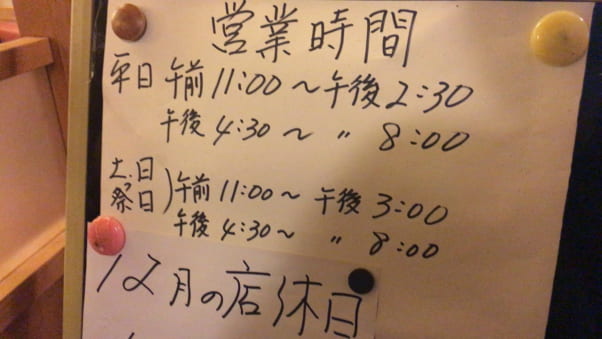 営業時間
平日 午前 11:00 ~ 午後 2:30
午後 4:30 ~ 〃 8:00
土.日
祭日) 午前 11:00 ~ 午後 3:00
午後 4:30 ~ 〃 8:00
12月の店休日